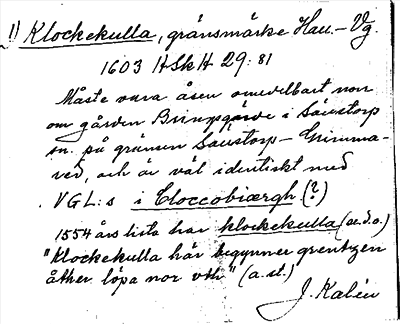 1) Klockekulla, gränsmärke Hall.-Vg.
1603 HSkH 29:81
Måste vara åsen omedelbart norr
om gården Bringsgärde i Sävstorp
sn. på gränsen Sävstorp - Grimma-
ved, och är väl identiskt med
VGL:s i Cloccobiærgh (?)
1554 års lista har klockekulla (a.d.o.)
"Klockekulla här begynner grentzen
åther löpa nor vth" (a.st.)
J. Kalén